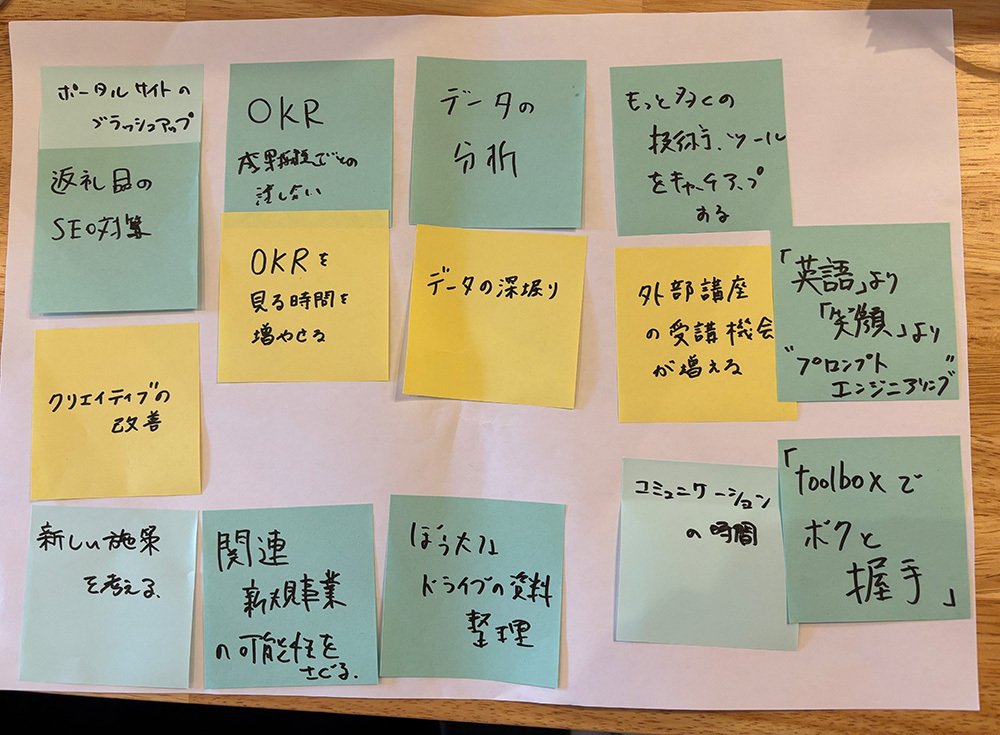 ポータルサイトの
ブラッシュアップ
返礼品の
SEO対策
OKR
成果指標ごとの
話し合い
データの
分析
もっと多くの
技術、ツール
をキャッチアップ
する
OKRを
見る時間を
増やせる
データの深堀り
外部講座
の受講機会
が増える
「英語」より
「笑顔」より
"プロンプト
エンジニアリング"
クリエイティブの
改善
新しい施策
を考える、
関連
新規事業
の可能性を
さぐる。
ぼう大な
ドライブの資料
整理
コミュニケーション
の時間
「toolboxで
ボクと
握手」